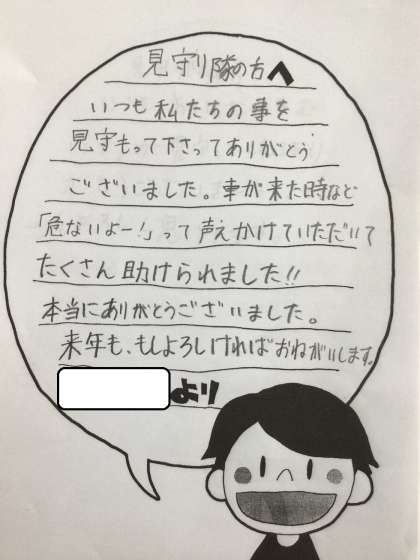 見守り隊の方へ
いつも私たちの事を
見守もって下さってありがとう
ございました。車が来た時など
「危ないよー!」って声えかけていただいて
たくさん助けられました!!
本当にありがとうございました。
来年も、もしよろしければおねがいします。
より